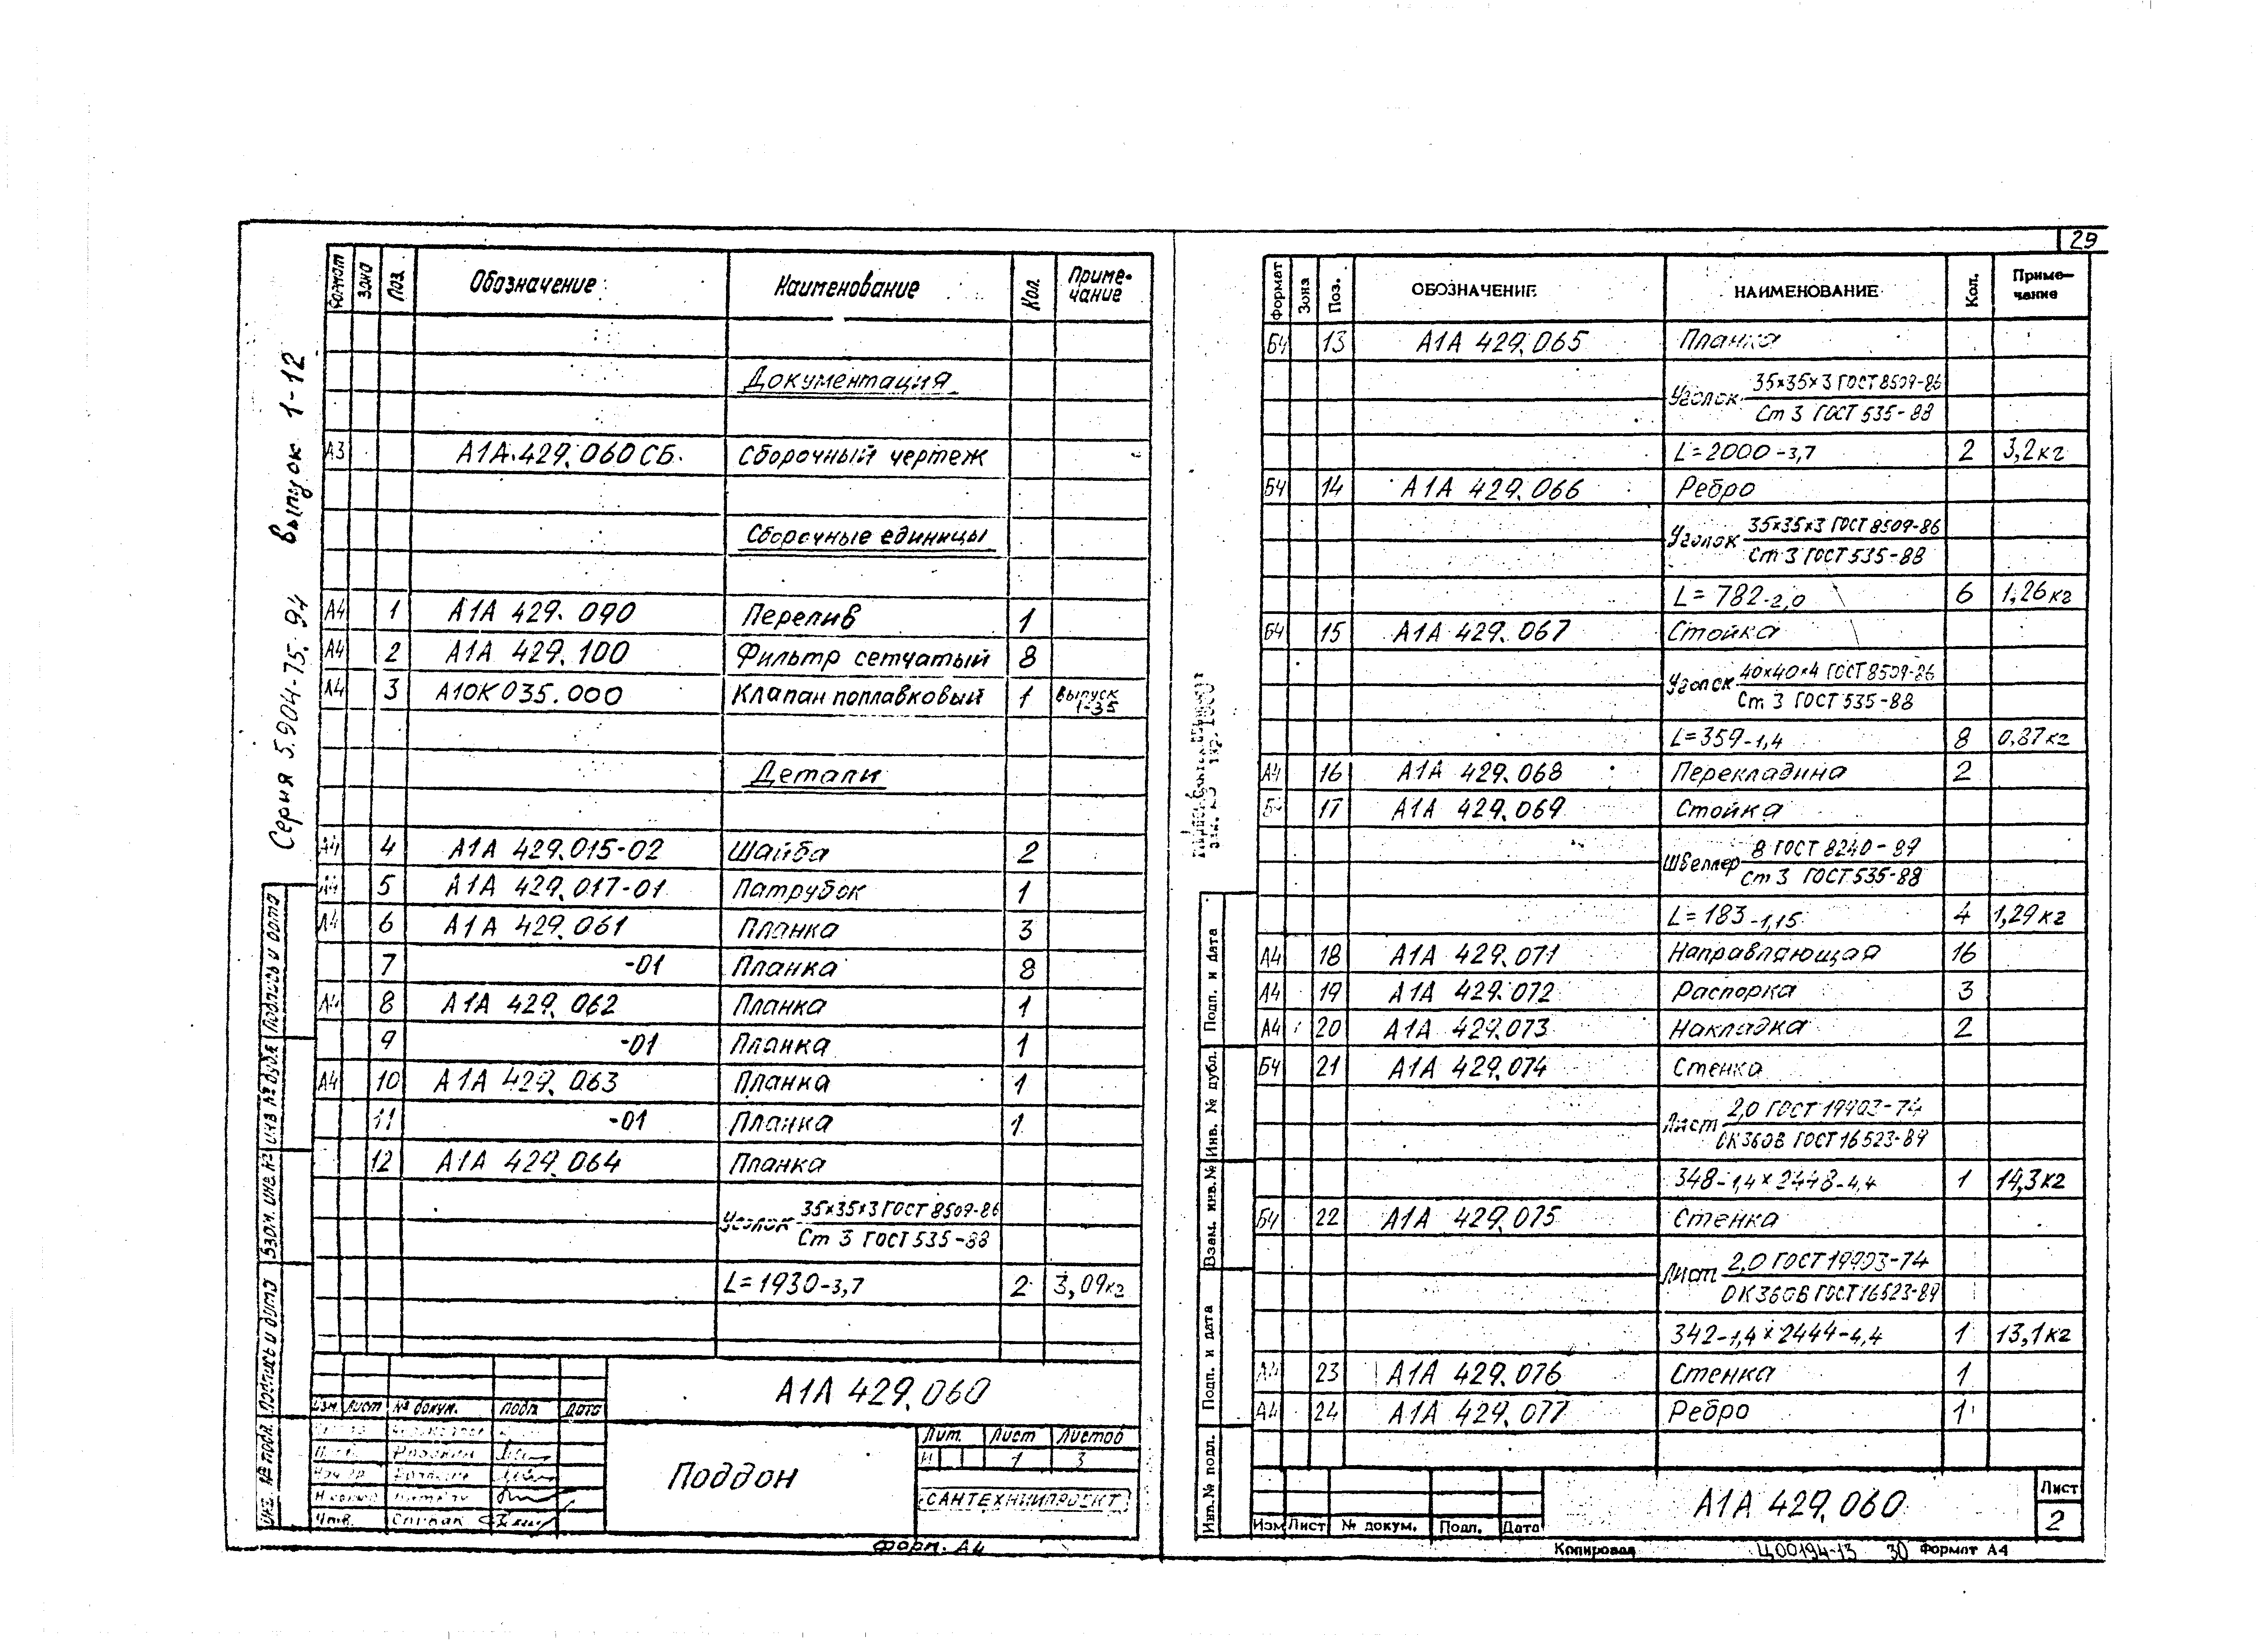 29
Серия 5.904-75.94 Выпуск 1-12
Формат Зона Поз. Обозначение Наименование Кол. Приме-чание
Документация
А3 А1А 429.060 СБ Сборочный чертеж
Сборочные единицы
А4 1 А1А 429.090 Перелив 1
А4 2 А1А 429.100 Фильтр сетчатый 8
А4 3 А10К035.000 Клапан поплавковый 1 Выпуск 1-35
Детали
А4 4 А1А 429.015-02 Шайба 2
А4 5 А1А 429.017-01 Патрубок 1
А4 6 А1А 429.061 Планка 3
7 -01 Планка 8
А4 8 А1А 429.062 Планка 1
9 -01 Планка 1
А4 10 А1А 429.063 Планка 1
11 -01 Планка 1
12 А1А 429.064 Планка
Уголок 35×35×3 ГОСТ 8509-86
Ст 3 ГОСТ 535-88
L=1930-3,7 2 3,09кг
А1А 429.060
Изм. Лист № докум. Подп. Дата
Поддон
Лит. Лист Листов
И 1 3
САНТЕХНИИПРОЕКТ
Н.контр.
Утв. Спивак
Форм. А4
Инв. № подл. Подпись и дата Взам. инв. № Инв № дубл. Подпись и дата
ФОРМАТ Зона Поз. ОБОЗНАЧЕНИЕ НАИМЕНОВАНИЕ Кол. Приме-чание
БЧ 13 А1А 429.065 Планка
Уголок 35×35×3 ГОСТ 8509-86
Ст 3 ГОСТ 535-88
L=2000-3,7 2 3,2кг
БЧ 14 А1А 429.066 Ребро
Уголок 35×35×3 ГОСТ 8509-86
Ст 3 ГОСТ 535-88
L=782-2,0 6 1,26кг
БЧ 15 А1А 429.067 Стойка
Уголок 40×40×4 ГОСТ 8509-86
Ст 3 ГОСТ 535-88
L=359-1,4 8 0,87кг
А4 16 А1А 429.068 Перекладина 2
БЧ 17 А1А 429.069 Стойка
Швеллер 8 ГОСТ 8240-89
Ст 3 ГОСТ 535-88
L=183-1,15 4 1,29кг
А4 18 А1А 429.071 Направляющая 16
А4 19 А1А 429.072 Распорка 3
А4 20 А1А 429.073 Накладка 2
БЧ 21 А1А 429.074 Стенка
Лист 2,0 ГОСТ 19903-74
ОК360В ГОСТ 16523-89
348-1,4×2448-4,4 1 14,3кг
БЧ 22 А1А 429.075 Стенка
Лист 2,0 ГОСТ 19903-74
ОК360В ГОСТ 16523-89
342-1,4×2444-4,4 1 13,1кг
А4 23 А1А 429.076 Стенка 1
А4 24 А1А 429.077 Ребро 1
Изм Лист № докум. Подп. Дата
А1А 429.060
Лист
2
Копировал Ц00194-13 30 Формат А4
Инв.№ подл. Подп. и дата Взам. инв.№ Инв. № дубл. Подп. и дата